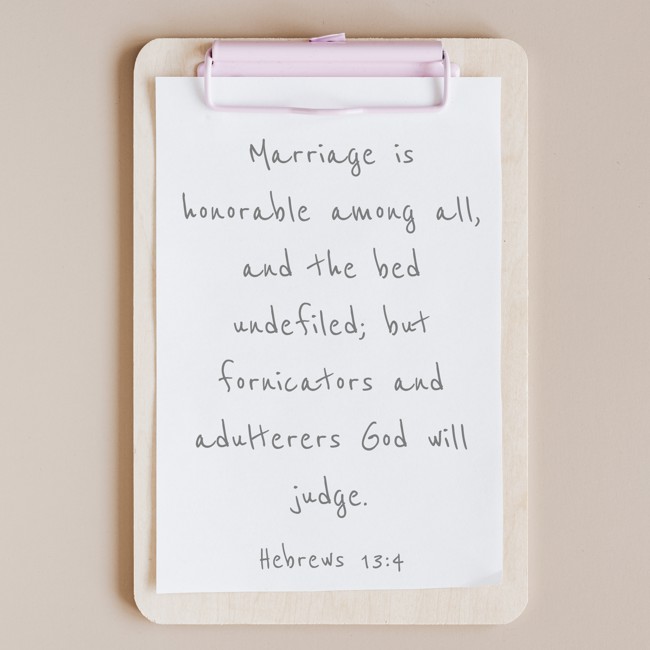 Marriage is
honorable among all,
and the bed
undefiled; but
fornicators and
adulterers God will
judge.
Hebrews 13:4